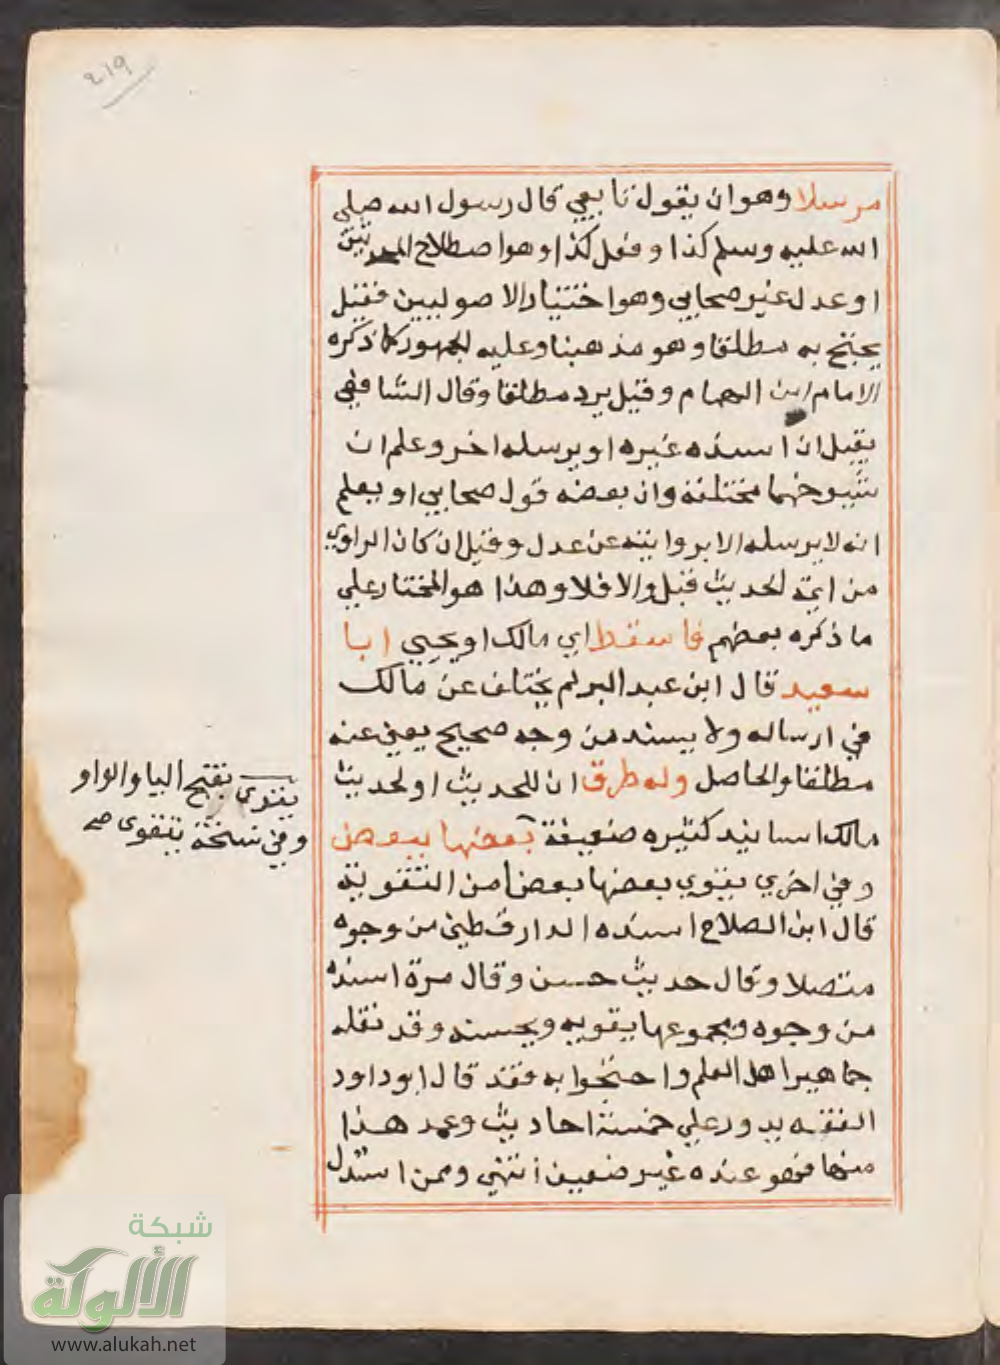 ٢١٩
مرسلا وهو ان يقول تابعي قال رسول الله صلي
الله عليه وسلم كذا وفعل كذا وهو اصطلاح المحدثين
او عدل غير صحابي وهو اختيار الاصوليين فقيل
يحتج به مطلقا وهو مذهبنا وعليه الجمهور كما ذكره
الامام ابن الهمام وقيل يرد مطلقا وقال الشافعي
يقبل ان اسنده غيره او يرسله اخر وعلم ان
شيوخهما مختلفة وان بعضه قول صحابي او يعلم
انه لا يرسله الا بروايته عن عدل وقيل ان كان الراوي
من ايمة الحديث قبل والا فلا وهذا هو المختار علي
ما ذكره بعضهم فاسقط اي مالك او يحيي ابا
سعيد قال ابن عبد البر لم يختلف عن مالك
في ارساله ولا يسند من وجه صحيح يعني عنه
مطلقا والحاصل وله طرق ان للحديث او لحديث
مالك اسانيد كثيره ضعيفة بعضها ببعض
وفي اخري يقوي بعضها بعضا من التقوية
قال ابن الصلاح اسنده الدارقطني من وجوه
متصلا وقال حديث حسن وقال مرة اسنده
من وجوه ومجموعها يقويه ويحسنه وقد نقله
جماهير اهل العلم واحتجوا به فقد قال ابو داود
الفقه يدور علي خمسة احاديث وعد هذا
منها فهو عنده غير ضعيف انتهي وممن استدل
يقوى بفتح اليا والواو
وفي نسخة يتقوى صح
شبكة
الألوكة
www.alukah.net